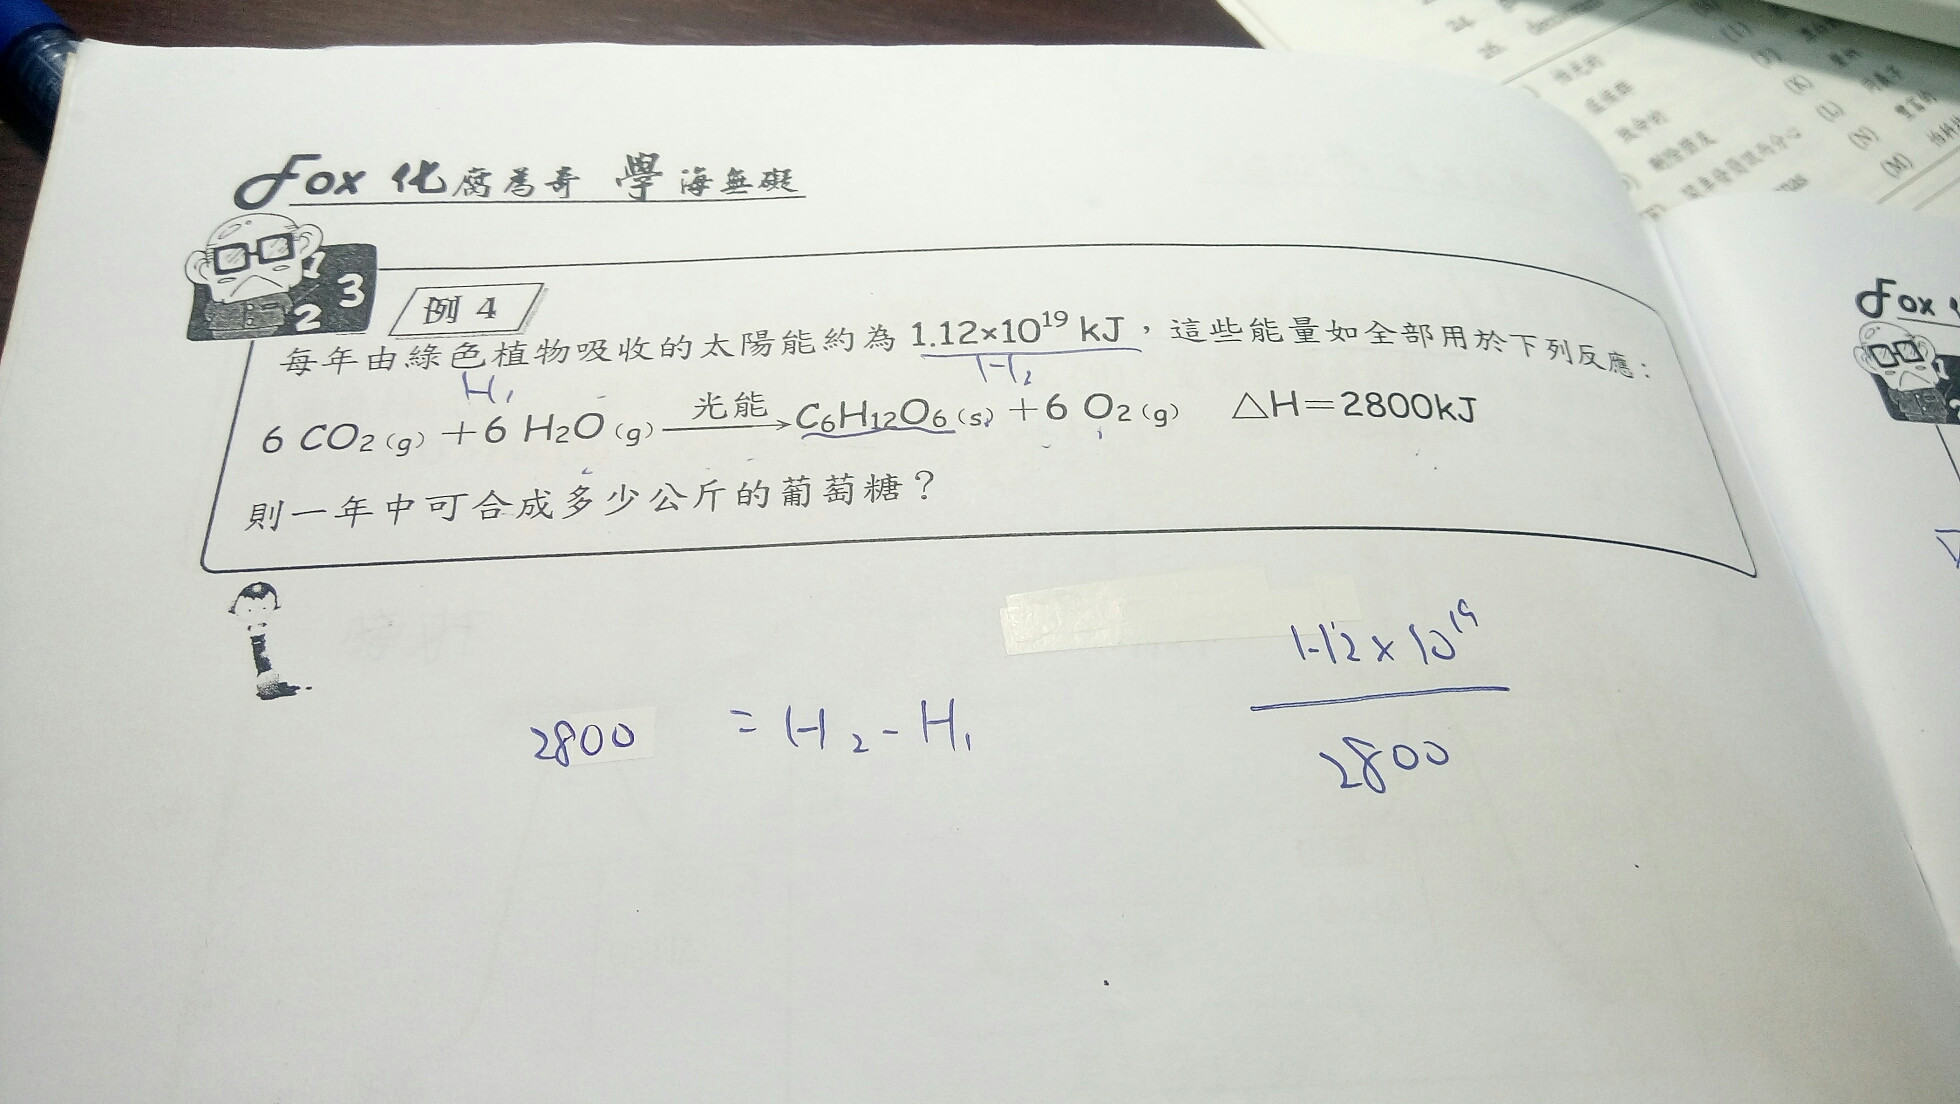 Fox 化腐為奇 學海無礙
1 2 3
例 4
每年由綠色植物吸收的太陽能約為 1.12×10¹⁹ kJ，這些能量如全部用於下列反應：
H₁ H₂
6 CO₂(g) +6 H₂O(g) 光能→ C₆H₁₂O₆(s) +6 O₂(g) △H=2800kJ
則一年中可合成多少公斤的葡萄糖？
1.12 x 10¹⁹
2800 = H₂ - H₁
2800
Fox
24.
26.
(K)
(L)
(N)
(M)